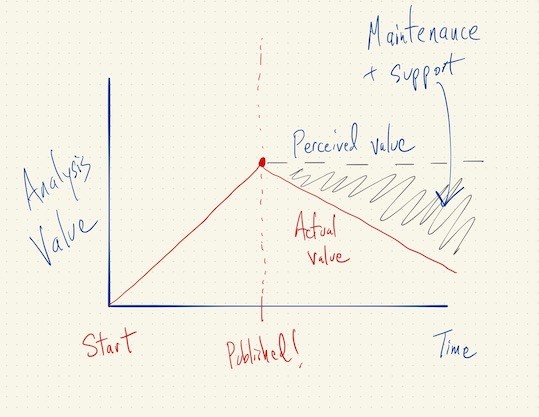 Maintenance
+ support
Perceived value
Analysis
Value
Actual
value
Start
Published!
Time